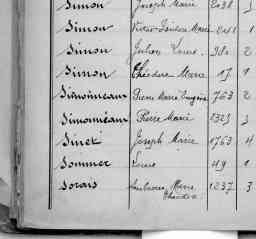 Simon Joseph Marie 2038 3
Simon Marie 1
Simon Julien Louis 380 2
Simon Théodore Marie 17 1
Simoneau Pierre Marie Eugène 763 2
Simonneau Pierre Marie 1323 3
Sinet Joseph Marie 1763 4
Sommer Louis 49 1
Sorais Ambroise Marie 1237 3